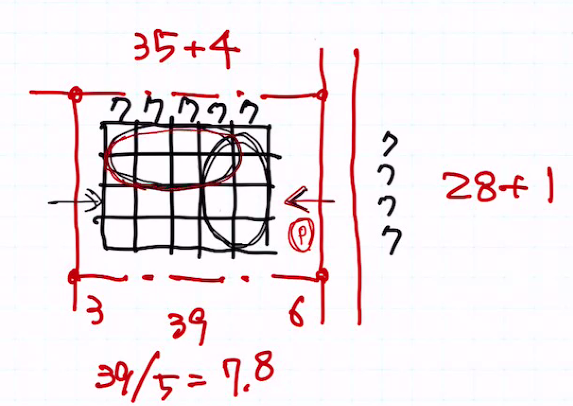 35+4
7 7 7 7 7
7
7
7
7
28+1
P
3 39 6
39/5=7.8